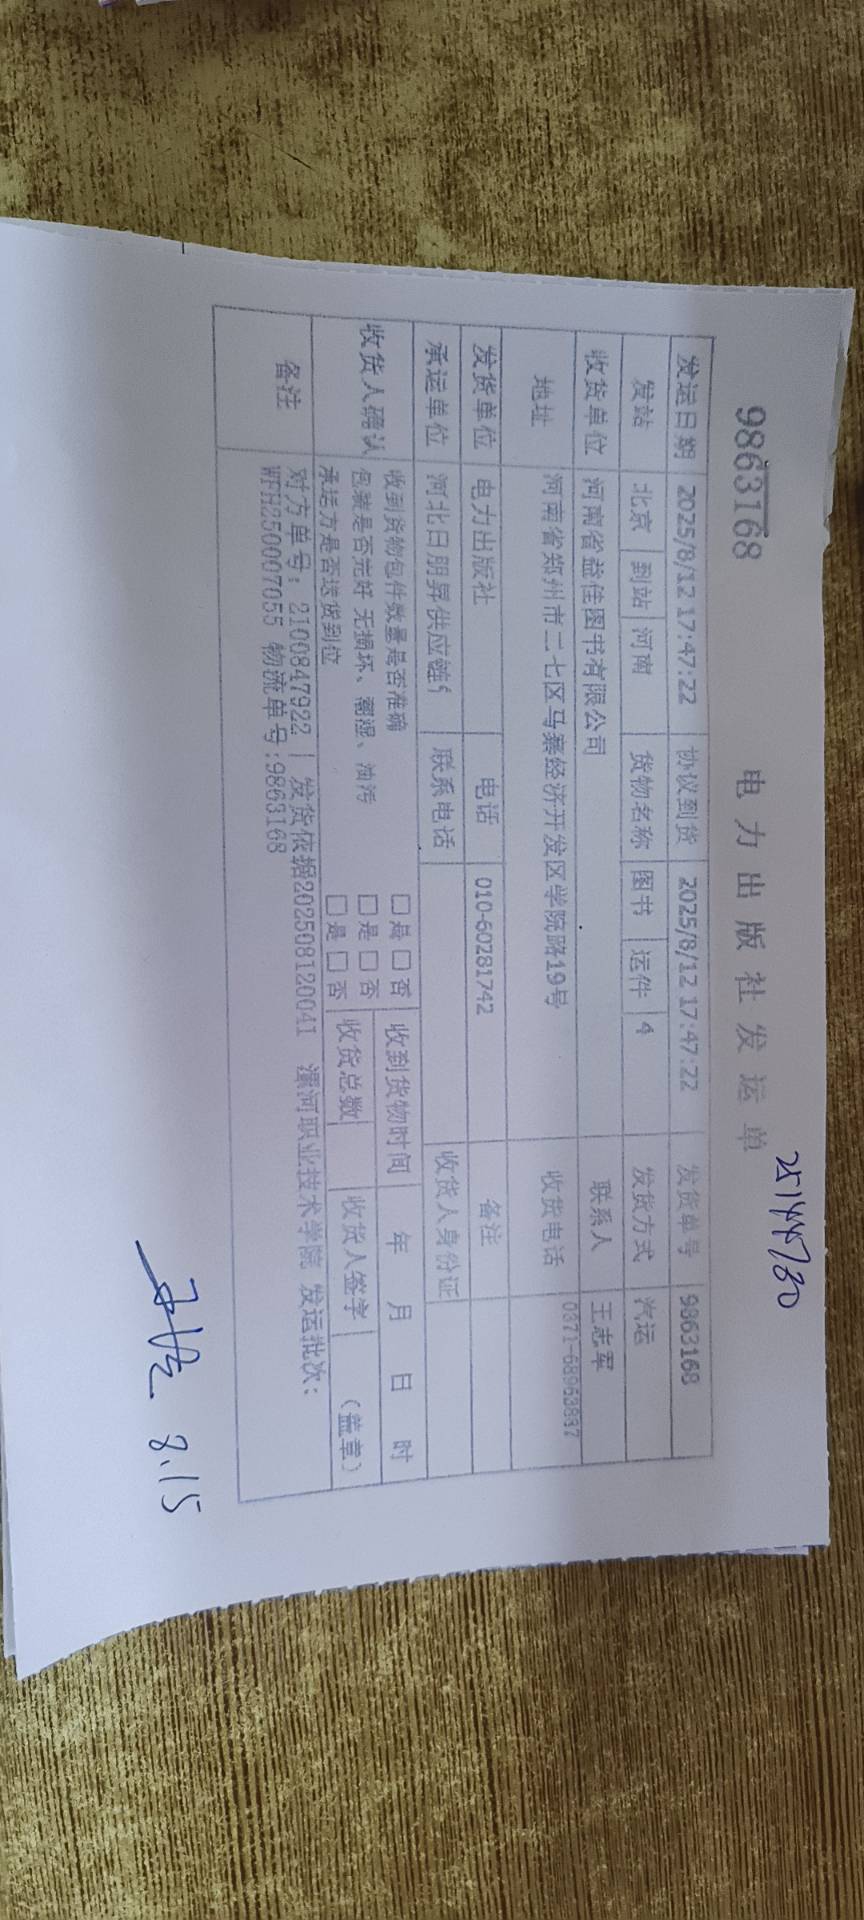 25144780
9863168 电力出版社发运单
发运日期 2025/8/12 17:47:22 协议到货 2025/8/12 17:47:22 发货单号 9863168
发站 北京 到站 河南 货物名称 图书 运件 4 发货方式 汽运
收货单位 河南省益佳图书有限公司 联系人 王志军
地址 河南省郑州市二七区马寨经济开发区学院路19号 收货电话 0371-68963837
发货单位 电力出版社 电话 010-60281742 备注
承运单位 河北日朋昇供应链 联系电话 收货人身份证
收货人确认 收到货物包件数量是否准确 □是 □否 收到货物时间 年 月 日 时
包装是否完好 无损坏、潮湿、油污 □是 □否
承运方是否送货到位 □是 □否 收货总数 收货人签字 (盖章)
备注 对方单号: 2100847922 | 发货依据202508120041 漯河职业技术学院 发运批次:
WFH250007055 物流单号:9863168
8.15